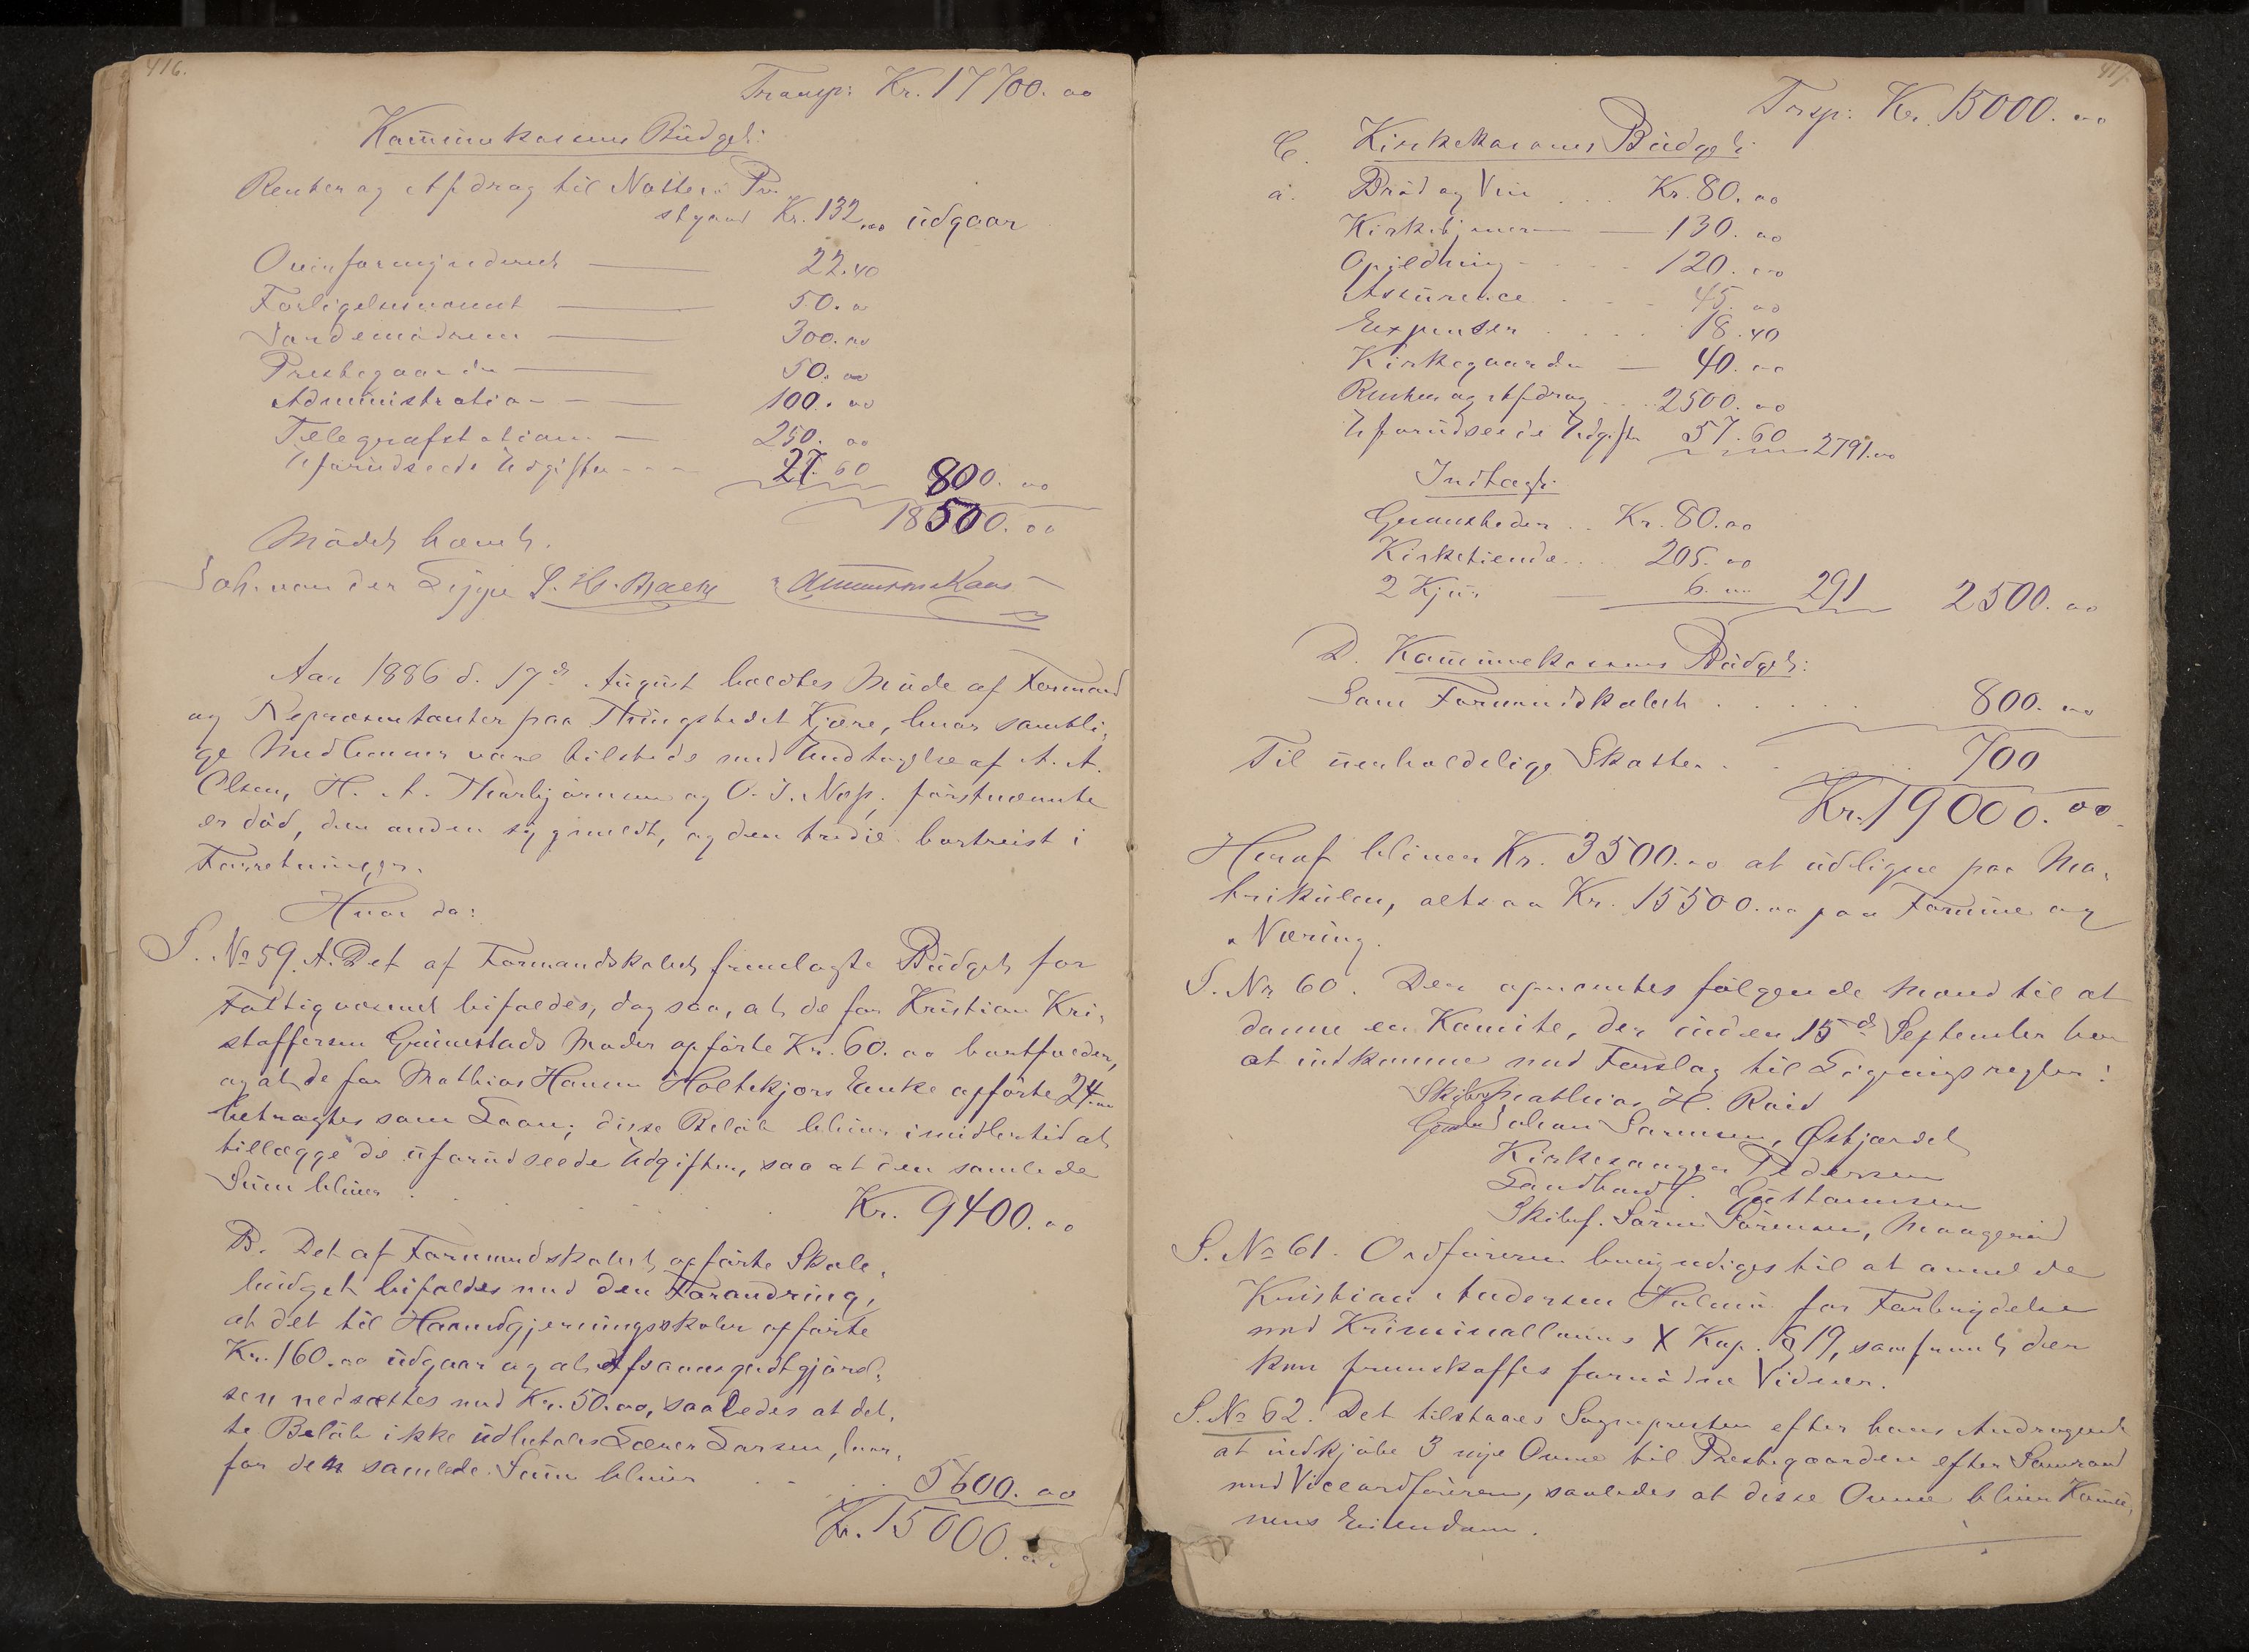 416.
Transp: Kr. 17700.00
Kommunekassens Budget:
Renter og Afdrag til Nøtterø Præ-
stgaard Kr. 132.00 udgaar
Overformynderiet 22.40
Forligelsesvæsenet 50.00
Sundemødrene 300.00
Prestegaarden 50.00
Administration 100.00
Telegrafstation 250.00
Uforudseede Udgifter 27.60 800.00
18500.00
Mødet hævet.
Joh. von der Lippe S. H. Bache
Aar 1886 d. 17de August holdtes Møde af Formænd
og Repræsentanter paa Thingstedet Kjære, hvor samtli-
ge Medlemmer vare tilstede med Undtagelse af A. A.
Olsen, H. A. Thorbjørnsen og O. I. Næs; førstnævnte
er død, den anden sygmeldt, og den tredie bortreist i
Forretninger.
Hvor da:
S. No 59. A. Det af Formandskabet fremlagte Budget for
Fattigvæsnet bifaldes, dog saa, at de for Kristian Kri-
stoffersen Grimestads Moder opførte Kr. 60.00 bortfalder,
og at de for Mathias Hansen Holtekjærs Enke opførte 24.00
betragtes som Laan; disse Beløb bliver imidlertid at
tillægge de uforudseede Udgifter, saa at den samlede
Sum bliver . . . . Kr. 9400.00
B. Det af Formandskabet opførte Skole-
budget bifaldes med den Forandring,
at det til Haandgjerningsskoler opførte
Kr. 160.00 udgaar og at Afsavnsgodtgjørel-
sen nedsættes med Kr. 50.00, saaledes at det-
te Beløb ikke udbetales Lærer Larsen, hvor-
for den samlede Sum bliver . . . 5600.00
Kr. 15000.00
417.
Trsp: Kr. 15000.00
C. Kirkekassens Budget:
a. Brød og Vin . . . Kr. 80.00
Kirketjener 130.00
Opildning 120.00
Assurence 45.00
Expenser 18.40
Kirkegaarden 40.00
Renter og Afdrag 2500.00
Uforudseede Udgifter 57.60 2791.00
Indtægt:
Gravsteder . . Kr. 80.00
Kirketiende . . 205.00
2 Kjør 6.00 291 2500.00
D. Kommunekassens Budget:
Som Formandskabet . . . . . 800.00
Til uerholdelige Skatter . . . . 700
Kr. 19000.00
Heraf bliver Kr. 3500.00 at udligne paa Ma-
trikulen, altsaa Kr. 15500.00 paa Formue og
Næring.
S. No 60. Der opnævntes følgende Mænd til at
danne en Komite, der inden 15de September har
at indkomme med Forslag til Ligningsregler:
Skibsf. Mathias H. Røid
Gaardb. Johan Sørensen, Østjordet
Kirkesanger Pedersen
Landhandl. Gustavnsen
Skibsf. Søren Sørensen, Maagerød
S. No 61. Ordføreren bemyndiges til at anmelde
Kristian Andersen Holmen for Forbrydelse
mod Kriminallovens X Kap. § 19, saafremt der
kan fremskaffes fornødne Vidner.
S. No 62. Det tilstaaes Sognepresten efter hans Andragende
at indkjøbe 3 nye Ovne til Prestegaarden efter Samraad
med Viceordføreren, saaledes at disse Ovne bliver Kommu-
nens Eiendom.